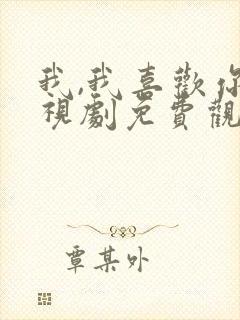 我,我喜歡你
視劇免費觀
覃某外